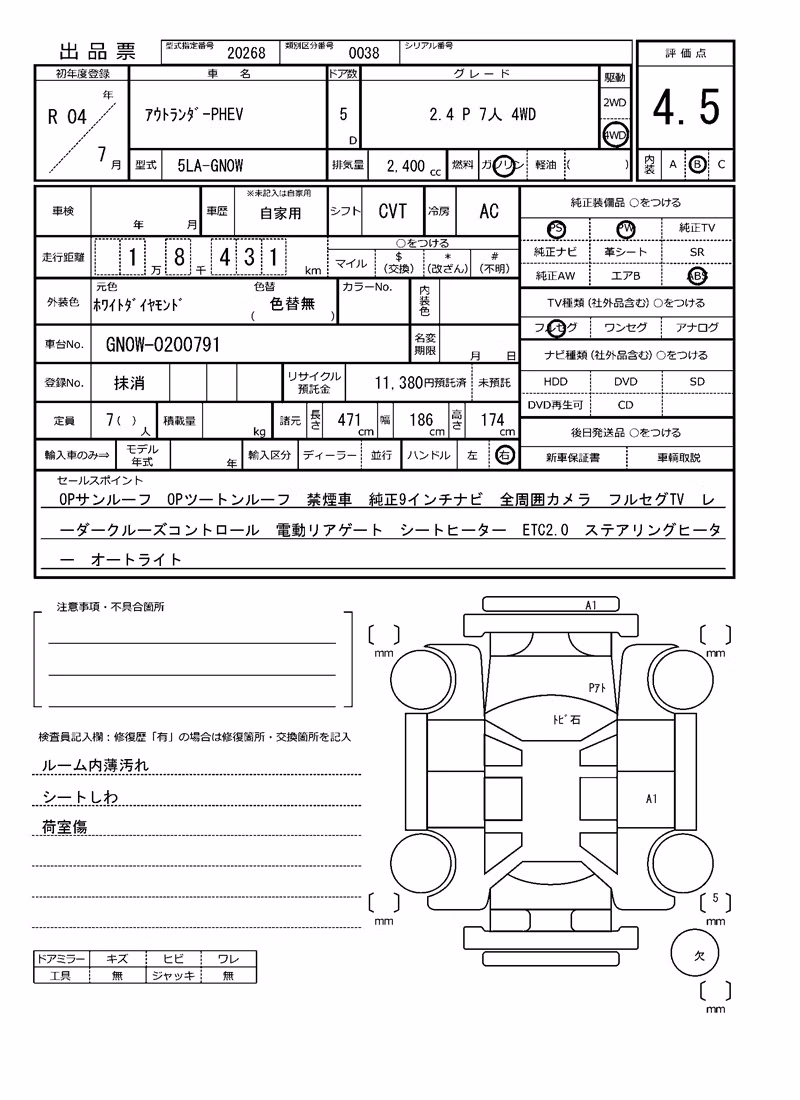 出品票 型式指定番号 20268 類別区分番号 0038 シリアル番号
評価点
4.5
内装 A B C
初年度登録 車名 ドア数 グレード 駆動
R 04 年 7 月 ｱｳﾄﾗﾝﾀﾞｰPHEV 5 D 2.4 P 7人 4WD 2WD 4WD
型式 5LA-GN0W 排気量 2,400 cc 燃料 ガソリン 軽油 ( )
車検 年 月 車歴 ※未記入は自家用 自家用 シフト CVT 冷房 AC
走行距離 1 万 8 千 4 3 1 km ○をつける
マイル $ (交換) * (改ざん) # (不明)
外装色 元色 ﾎﾜｲﾄﾀﾞｲﾔﾓﾝﾄﾞ 色替 ( 色替無 ) カラーNo. 内装色
車台No. GN0W-0200791 名変期限 月 日
登録No. 抹消 リサイクル預託金 11,380円預託済 未預託
定員 7( ) 人 積載量 kg 諸元 長さ 471 cm 幅 186 cm 高さ 174 cm
輸入車のみ⇒ モデル年式 年 輸入区分 ディーラー 並行 ハンドル 左 右
純正装備品 ○をつける
PS PW 純正TV
純正ナビ 革シート SR
純正AW エアB ABS
TV種類(社外品含む)○をつける
フルセグ ワンセグ アナログ
ナビ種類(社外品含む)○をつける
HDD DVD SD
DVD再生可 CD
後日発送品 ○をつける
新車保証書 車輌取説
セールスポイント
OPサンルーフ OPツートンルーフ 禁煙車 純正9インチナビ 全周囲カメラ フルセグTV レ
ーダークルーズコントロール 電動リアゲート シートヒーター ETC2.0 ステアリングヒータ
ー オートライト
注意事項・不具合箇所
検査員記入欄：修復歴「有」の場合は修復箇所・交換箇所を記入
ルーム内薄汚れ
シートしわ
荷室傷
ドアミラー キズ ヒビ ワレ
工具 無 ジャッキ 無
A1
mm
mm
Pｱﾄ
ﾄﾋﾞ石
A1
mm
5
mm
欠
mm